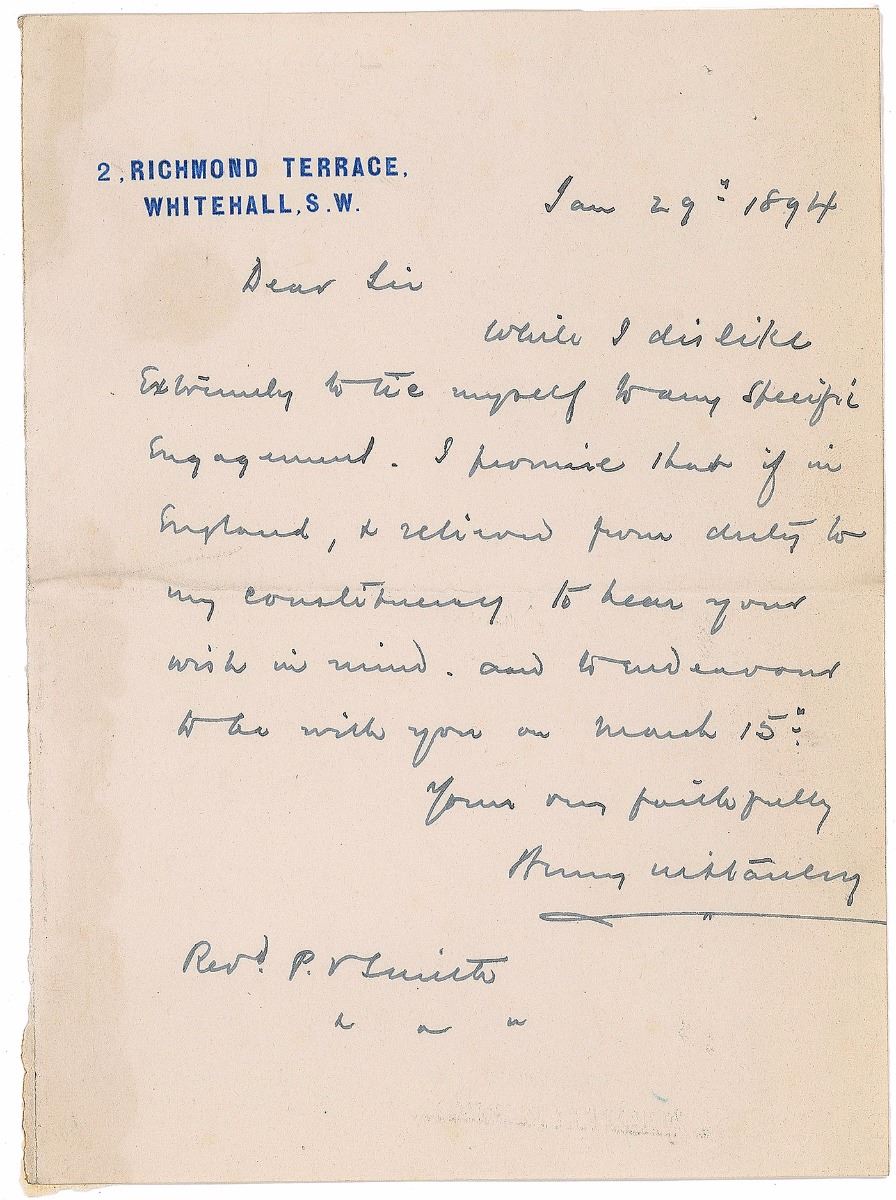 2, RICHMOND TERRACE,
WHITEHALL, S.W.
Jan 29" 1894
Dear Sir
While I dislike
Extremely to tie myself to any Specific
Engagement. I promise that if in
England, & relieved from duty to
my constituency to bear your
wish in mind. and to endeavour
to be with you on March 15"
Yours very faithfully
Henry M Stanley
Revd. P. V Smith